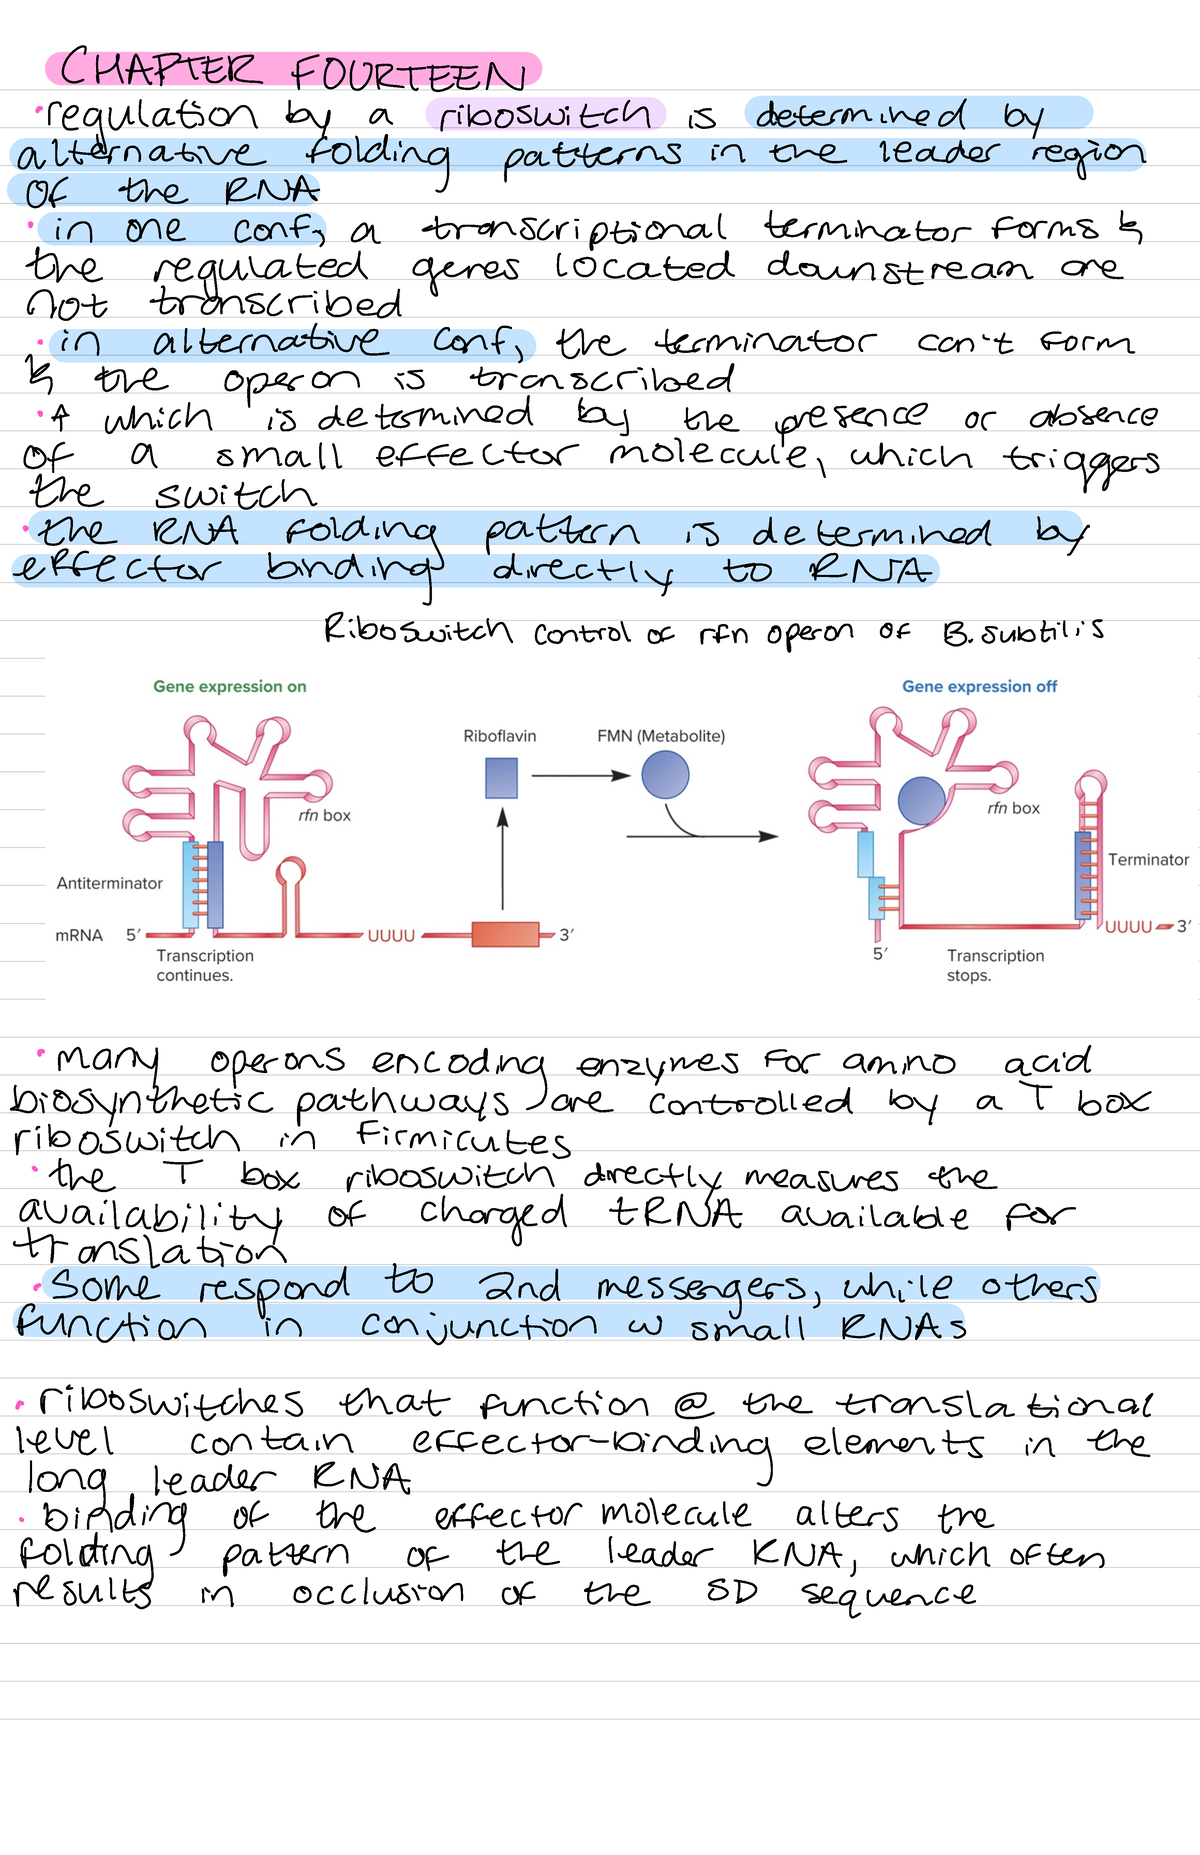 CHAPTER FOURTEEN
•regulation by a riboswitch is determined by
alternative folding patterns in the leader region
of the RNA
•in one conf, a transcriptional terminator forms &
the regulated genes located downstream are
not transcribed
•in alternative conf, the terminator can't form
& the operon is transcribed
•↑ which is determined by the presence or absence
of a small effector molecule, which triggers
the switch
•the RNA folding pattern is determined by
effector binding directly to RNA
Riboswitch control of rfn operon of B. subtilis
Gene expression on
Gene expression off
Riboflavin
FMN (Metabolite)
rfn box
rfn box
Terminator
Antiterminator
mRNA 5′
UUUU
3′
UUUU
3′
5′
Transcription
continues.
Transcription
stops.
•many operons encoding enzymes for amino acid
biosynthetic pathways are controlled by a T box
riboswitch in Firmicutes
•the T box riboswitch directly measures the
availability of charged tRNA available for
translation
•Some respond to 2nd messengers, while others
function in conjunction w small RNAs
•riboswitches that function @ the translational
level contain effector-binding elements in the
long leader RNA
•binding of the effector molecule alters the
folding pattern of the leader RNA, which often
results in occlusion of the SD sequence